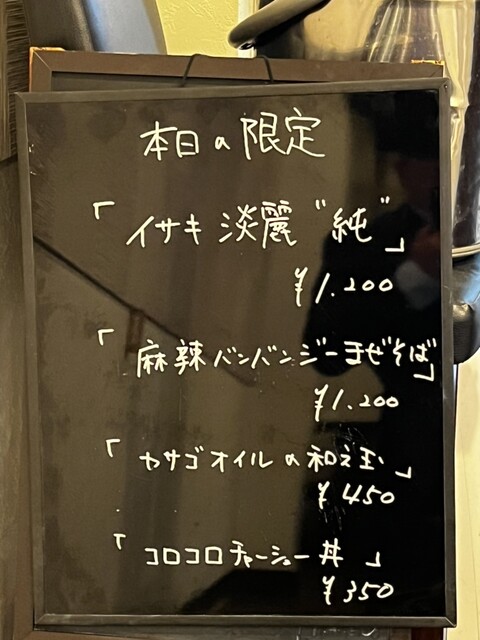 本日の限定
「イサキ淡麗"純"」
¥1.200
「麻辣バンバンジーまぜそば」
¥1.200
「カサゴオイルの和え玉」
¥450
「コロコロチャーシュー丼」
¥350